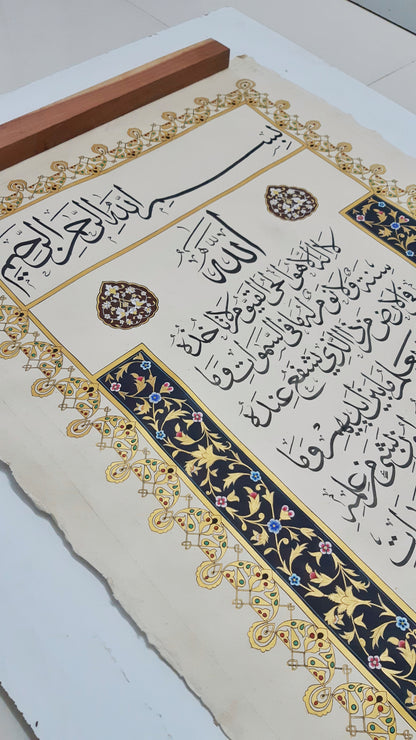 بسم الله الرحمن الرحيم
الله
لا اله الا هو الحي القيوم لا تأخذه
سنة ولا نوم له ما في السموات وما
الارض من ذا الذي يشفع عنده
يعلم ما بين ايديهم وما
بشئ من علمه